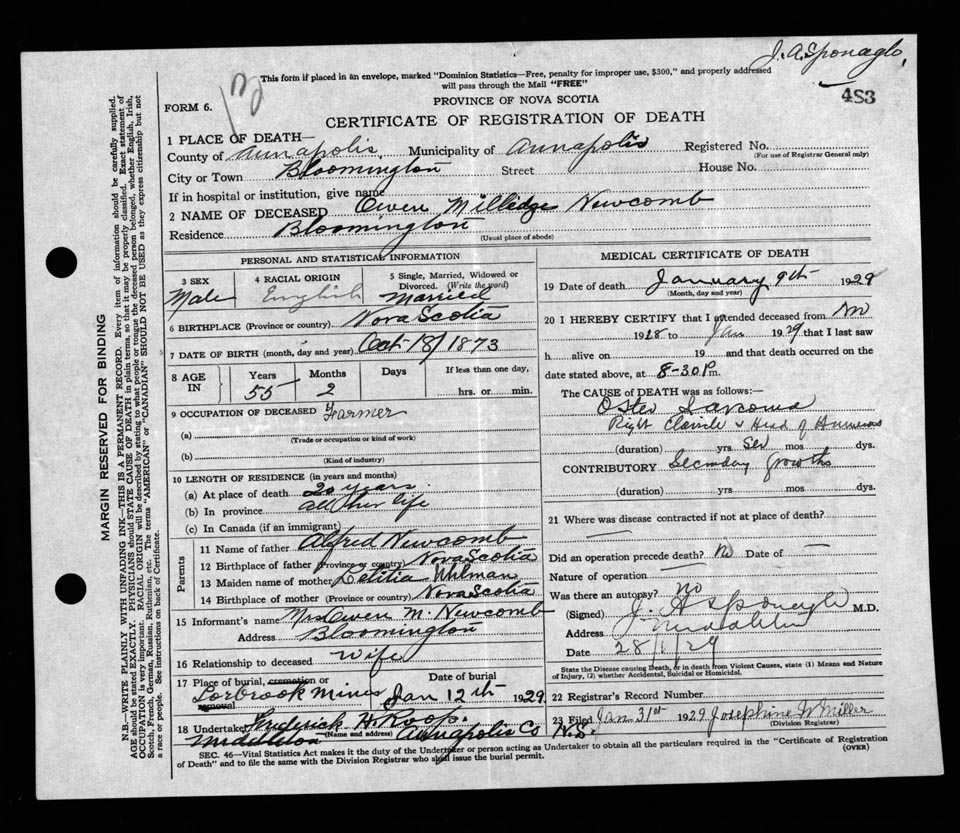 J. A. Sponaglo,
This form if placed in an envelope, marked "Dominion Statistics—Free, penalty for improper use, $300," and properly addressed
will pass through the Mail "FREE"
483
FORM 6.
PROVINCE OF NOVA SCOTIA
CERTIFICATE OF REGISTRATION OF DEATH
1 PLACE OF DEATH—
County of Annapolis, Municipality of Annapolis Registered No.
(For use of Registrar General only)
City or Town Bloomington Street House No.
If in hospital or institution, give name
2 NAME OF DECEASED Owen Milledge Newcomb
Residence Bloomington
(Usual place of abode)
PERSONAL AND STATISTICAL INFORMATION
3 SEX Male
4 RACIAL ORIGIN English
5 Single, Married, Widowed or Divorced. (Write the word) Married
6 BIRTHPLACE (Province or country) Nova Scotia
7 DATE OF BIRTH (month, day and year) Oct 18/1873
8 AGE IN Years 55 Months 2 Days If less than one day, hrs. or min.
9 OCCUPATION OF DECEASED Farmer
(a)
(Trade or occupation or kind of work)
(b)
(Kind of industry)
10 LENGTH OF RESIDENCE (in years and months)
(a) At place of death 20 years
(b) In province all his life
(c) In Canada (if an immigrant)
Parents
11 Name of father Alfred Newcomb
12 Birthplace of father (Province or country) Nova Scotia
13 Maiden name of mother Letitia Whlman
14 Birthplace of mother (Province or country) Nova Scotia
15 Informant's name Mrs Owen M. Newcomb
Address Bloomington
16 Relationship to deceased Wife
17 Place of burial, cremation or removal Date of burial
Torbrook Mines Jan 12th 1929
18 Undertaker Frederick H. Roop.
Middleton (Name and address) Annapolis Co N.S.
MEDICAL CERTIFICATE OF DEATH
19 Date of death January 9th 1929
(Month, day and year)
20 I HEREBY CERTIFY that I attended deceased from
1928 to Jan 1929 that I last saw
h alive on 19 and that death occurred on the
date stated above, at 8-30 P m.
The CAUSE OF DEATH was as follows:—
Osteo Sarcoma
Right Clavicle & Head of Humerous
(duration) yrs mos dys.
CONTRIBUTORY Secondary growths
(duration) yrs mos dys.
21 Where was disease contracted if not at place of death?
Did an operation precede death? No Date of —
Nature of operation
Was there an autopsy? no
(Signed) J. A Sponaglo M.D.
Address Middleton
Date 28/1/29
State the Disease causing Death, or in death from Violent Causes, state (1) Means and Nature
of Injury, (2) whether Accidental, Suicidal or Homicidal.
22 Registrar's Record Number
23 Filed Jan 31st 1929 Josephine W Miller
(Division Registrar)
SEC. 46—Vital Statistics Act makes it the duty of the Undertaker or person acting as Undertaker to obtain all the particulars required in the "Certificate of Registration
of Death" and to file the same with the Division Registrar who shall issue the burial permit.
(OVER)
MARGIN RESERVED FOR BINDING
N.B.—WRITE PLAINLY WITH UNFADING INK—THIS IS A PERMANENT RECORD. Every item of information should be carefully supplied.
AGE should be stated EXACTLY. PHYSICIANS should STATE CAUSE OF DEATH in plain terms, so that it may be properly classified. Exact statement of
OCCUPATION is very important. RACIAL ORIGIN will be described by stating to what people or tongue the deceased person belonged, whether English, Irish,
Scotch, French, German, Russian, Ruthenian, etc. The terms "AMERICAN" or "CANADIAN" SHOULD NOT BE USED as they express citizenship but not
a race or people. See instructions on back of Certificate.